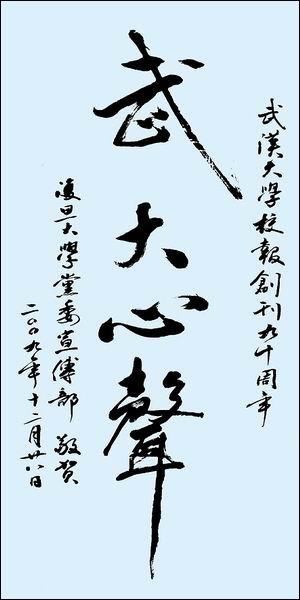 武漢大學校報創刊九十周年
武大心聲
復旦大學黨委宣傳部 敬賀
二〇〇九年十二月廿八日